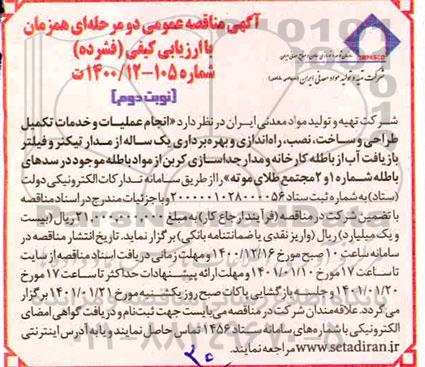 آگهی مناقصه عمومی دو مرحله‌ای همزمان
با ارزیابی کیفی (فشرده)
شماره ۱۰۵-۱۴۰۰/۱۲ ت
(نوبت دوم)
IMPASCO
شرکت تهیه و تولید مواد معدنی ایران (سهامی خاص)
شرکت تهیه و تولید مواد معدنی ایران در نظر دارد «انجام عملیات و خدمات تکمیل
طراحی و ساخت، نصب، راه‌اندازی و بهره‌برداری یک ساله از مدار تیکنر و فیلتر
بازیافت آب از باطله کارخانه و مدار جداسازی کربن از مواد باطله موجود در سدهای
باطله شماره ۱ و ۲ مجتمع طلای موته» را از طریق سامانه تدارکات الکترونیکی دولت
(ستاد) به شماره ثبت ستاد ۲۰۰۰۰۰۱۰۲۸۰۰۰۰۵۶ و با جزئیات مندرج در اسناد مناقصه
با تضمین شرکت در مناقصه (فرآیند ارجاع کار) به مبلغ ۲۱,۰۰۰,۰۰۰,۰۰۰ ریال (بیست
و یک میلیارد) ریال (واریز نقدی یا ضمانتنامه بانکی) برگزار نماید. تاریخ انتشار مناقصه در
سامانه ساعت ۱۰ صبح مورخ ۱۴۰۰/۱۲/۱۶ و مهلت زمانی دریافت اسناد مناقصه از سایت
تا ساعت ۱۷ مورخ ۱۴۰۱/۰۱/۱۰ و مهلت ارائه پیشنهادات حداکثر تا ساعت ۱۷ مورخ
۱۴۰۱/۰۱/۲۰ و جلسه بازگشایی پاکات صبح روز یکشنبه مورخ ۱۴۰۱/۰۱/۲۱ برگزار
می گردد. علاقه‌مندان شرکت در مناقصه می‌بایست جهت ثبت‌نام و دریافت گواهی امضای
الکترونیکی با شماره‌های سامانه ستاد ۱۴۵۶ تماس حاصل نمایند و یا به آدرس اینترنتی
www.setadiran.ir مراجعه نمایند.